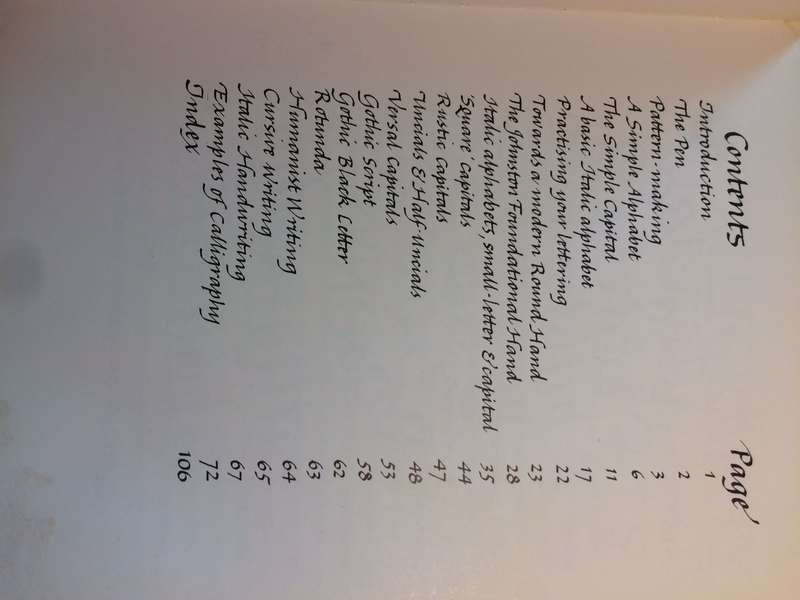 Contents Page
Introduction 1
The Pen 2
Pattern-making 3
A Simple Alphabet 6
The Simple Capital 11
A basic Italic alphabet 17
Practising your lettering 22
Towards a modern Round Hand 23
The Johnston Foundational Hand 28
Italic alphabets, small-letter & capital 35
'Square' Capitals 44
Rustic Capitals 47
Uncials & Half-Uncials 48
Versal Capitals 53
Gothic Script 58
Gothic Black Letter 62
Rotunda 63
Humanist Writing 64
Cursive Writing 65
Italic Handwriting 67
Examples of Calligraphy 72
Index 106